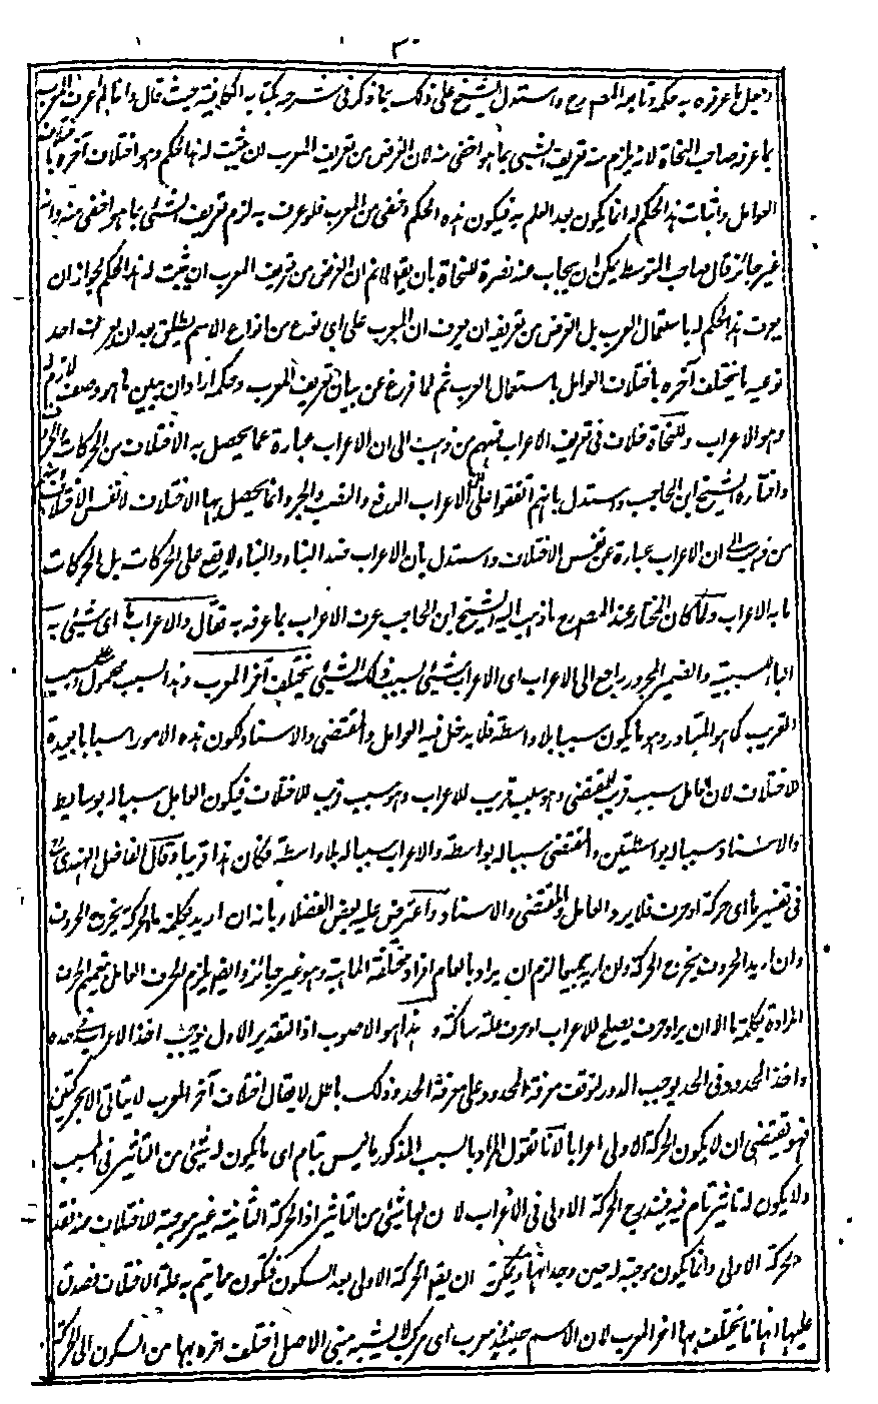 ٣٠
وجعل ما عرفوه به حكمه وتابعه المصرح واستدل الشيخ على ذلك بما ذكر في شرحه لكتابه الكافية حيث قال وانما لم اعرف المعرب
بما عرفه صاحب النحاة لانه يلزم منه تعريف الشئ بما هو اخفى منه لان الغرض من تعريف المعرب لان يثبت له هذا الحكم وهو اختلاف آخره با
العوامل واثبات هذا الحكم له انما يكون بعد العلم به فيكون هذه الحكم اخفى من المعرب فلو عرف به لزم تعريف الشئ بما هو اخفى منه وانه
غير جائز قال صاحب المتوسط يمكن ان يجاب عنه نصرة للنحاة بان يقو لا نم ان الغرض من تعريف المعرب ان يثبت له هذا الحكم لجواز ان
يعرف هذا الحكم له باستعمال العرب بل الغرض من تعريفه ان يعرف ان المعرب على اي نوع من انواع الاسم يطلق بعد ان يعرف احد
نوعيه ما يختلف آخره باختلاف العوامل باستعمال العرب ثم لما فرغ عن بيان تعريف المعرب وحكمه اراد ان يبين ما هو وصف لازم له
وهو الاعراب وللنحاة خلاف في تعريف الاعراب فمنهم من ذهب الى ان الاعراب عبارة عما يحصل به الاختلاف من الحركات والحروف
واختاره الشيخ ابن الحاجب واستدل بانهم اتفقوا على ان الاعراب الرفع والنصب والجر وانما يحصل بها الاختلاف لا نفس الاختلاف ومنهم
من ذهب الى ان الاعراب عبارة عن نفس الاختلاف واستدل بان الاعراب ضد البناء والبناء لا يقع على الحركات بل الحركات
ما به الاعراب ولما كان المختار عند المصرح ما ذهب اليه الشيخ ابن الحاجب عرف الاعراب بما عرفه به فقال والاعراب ما اى شئ به
الباء للسببية والضمير المجرور راجع الى الاعراب اى الاعراب شئ بسبب ذلك الشئ يختلف آخر المعرب وهذا السبب محمول على السبب
القريب كما هو المتبادر وهو ما يكون سببا بلا واسطة فلا يدخل فيه العوامل والمقتضى والاسناد لكون هذه الامور اسبابا بعيدة
للاختلاف لان العامل سبب قريب للمقتضى وهو سبب قريب للاعراب وهو سبب قريب للاختلاف فيكون العامل سببا له بوسائط
والاسناد سببا له بواسطتين والمقتضى سببا له بواسطة والاعراب سببا له بلا واسطة فكان هذا قريبا وقال الفاضل الهندى
في تفسير ما اى حركة او حرف فلا يرد العامل والمقتضى والاسناد واعترض عليه بعض الفضلاء بانه ان اريد بكلمة ما الحركة يخرج الحروف
وان اريد الحروف يخرج الحركة وان اريد جميعا لزم ان يراد بالعام افراد مختلفة الماهية وهو غير جائز وايضا يلزم الحرف العامل بتعميم الحرف
المرادة بكلمة ما الا ان يراد حرف يصلح للاعراب او حرف علة ساكنة و هذا هو الاصوب اذ التقدير الاول يوجب اخذ الاعراب في حده
واخذ المحدود في الحد يوجب الدور لتوقف معرفة المحدود على معرفة الحد وذلك باطل لا يقال اختلاف آخر المعرب لا يتاتى الا بحركتين
فهو يقتضى ان لا يكون الحركة الاولى اعرابا لانا نقول المراد بالسبب المذكور ما ليس بتام اى ما يكون له شئ من التاثير في المسبب
ولا يكون له تاثير تام فيه فيندرج الحركة الاولى في الاعراب لا ن لها شئ من التاثير اذ الحركة الثانية غير موجبة للاختلاف عند فقد
الحركة الاولى وانما يكون موجبة له حين وجدانها ويمكن ان يقو الحركة الاولى بعد السكون فتكون مما يتم به علة الاختلاف فصدق
عليها انها ما يختلف بها اخر المعرب لان الاسم حينئذ معرب اى مركب لا يشبه مبنى الاصل اختلف اخره بها من السكون الى الحركة